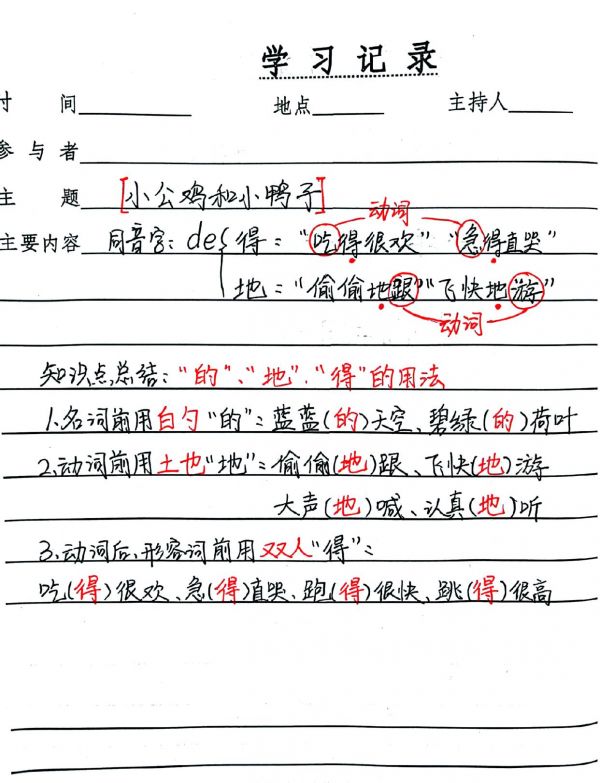 学习记录
时 间 地点 主持人
参与者
主 题 [小公鸡和小鸭子]
动词
主要内容 同音字:de{得:“吃得很欢”“急得直哭”
地:“偷偷地跟”“飞快地游”
动词
知识点总结:“的”、“地”、“得”的用法
1.名词前用白勺“的”:蓝蓝(的)天空、碧绿(的)荷叶
2.动词前用土也“地”:偷偷(地)跟、飞快(地)游
大声(地)喊、认真(地)听
3.动词后,形容词前用双人“得”:
吃(得)很欢、急(得)直哭、跑(得)很快、跳(得)很高